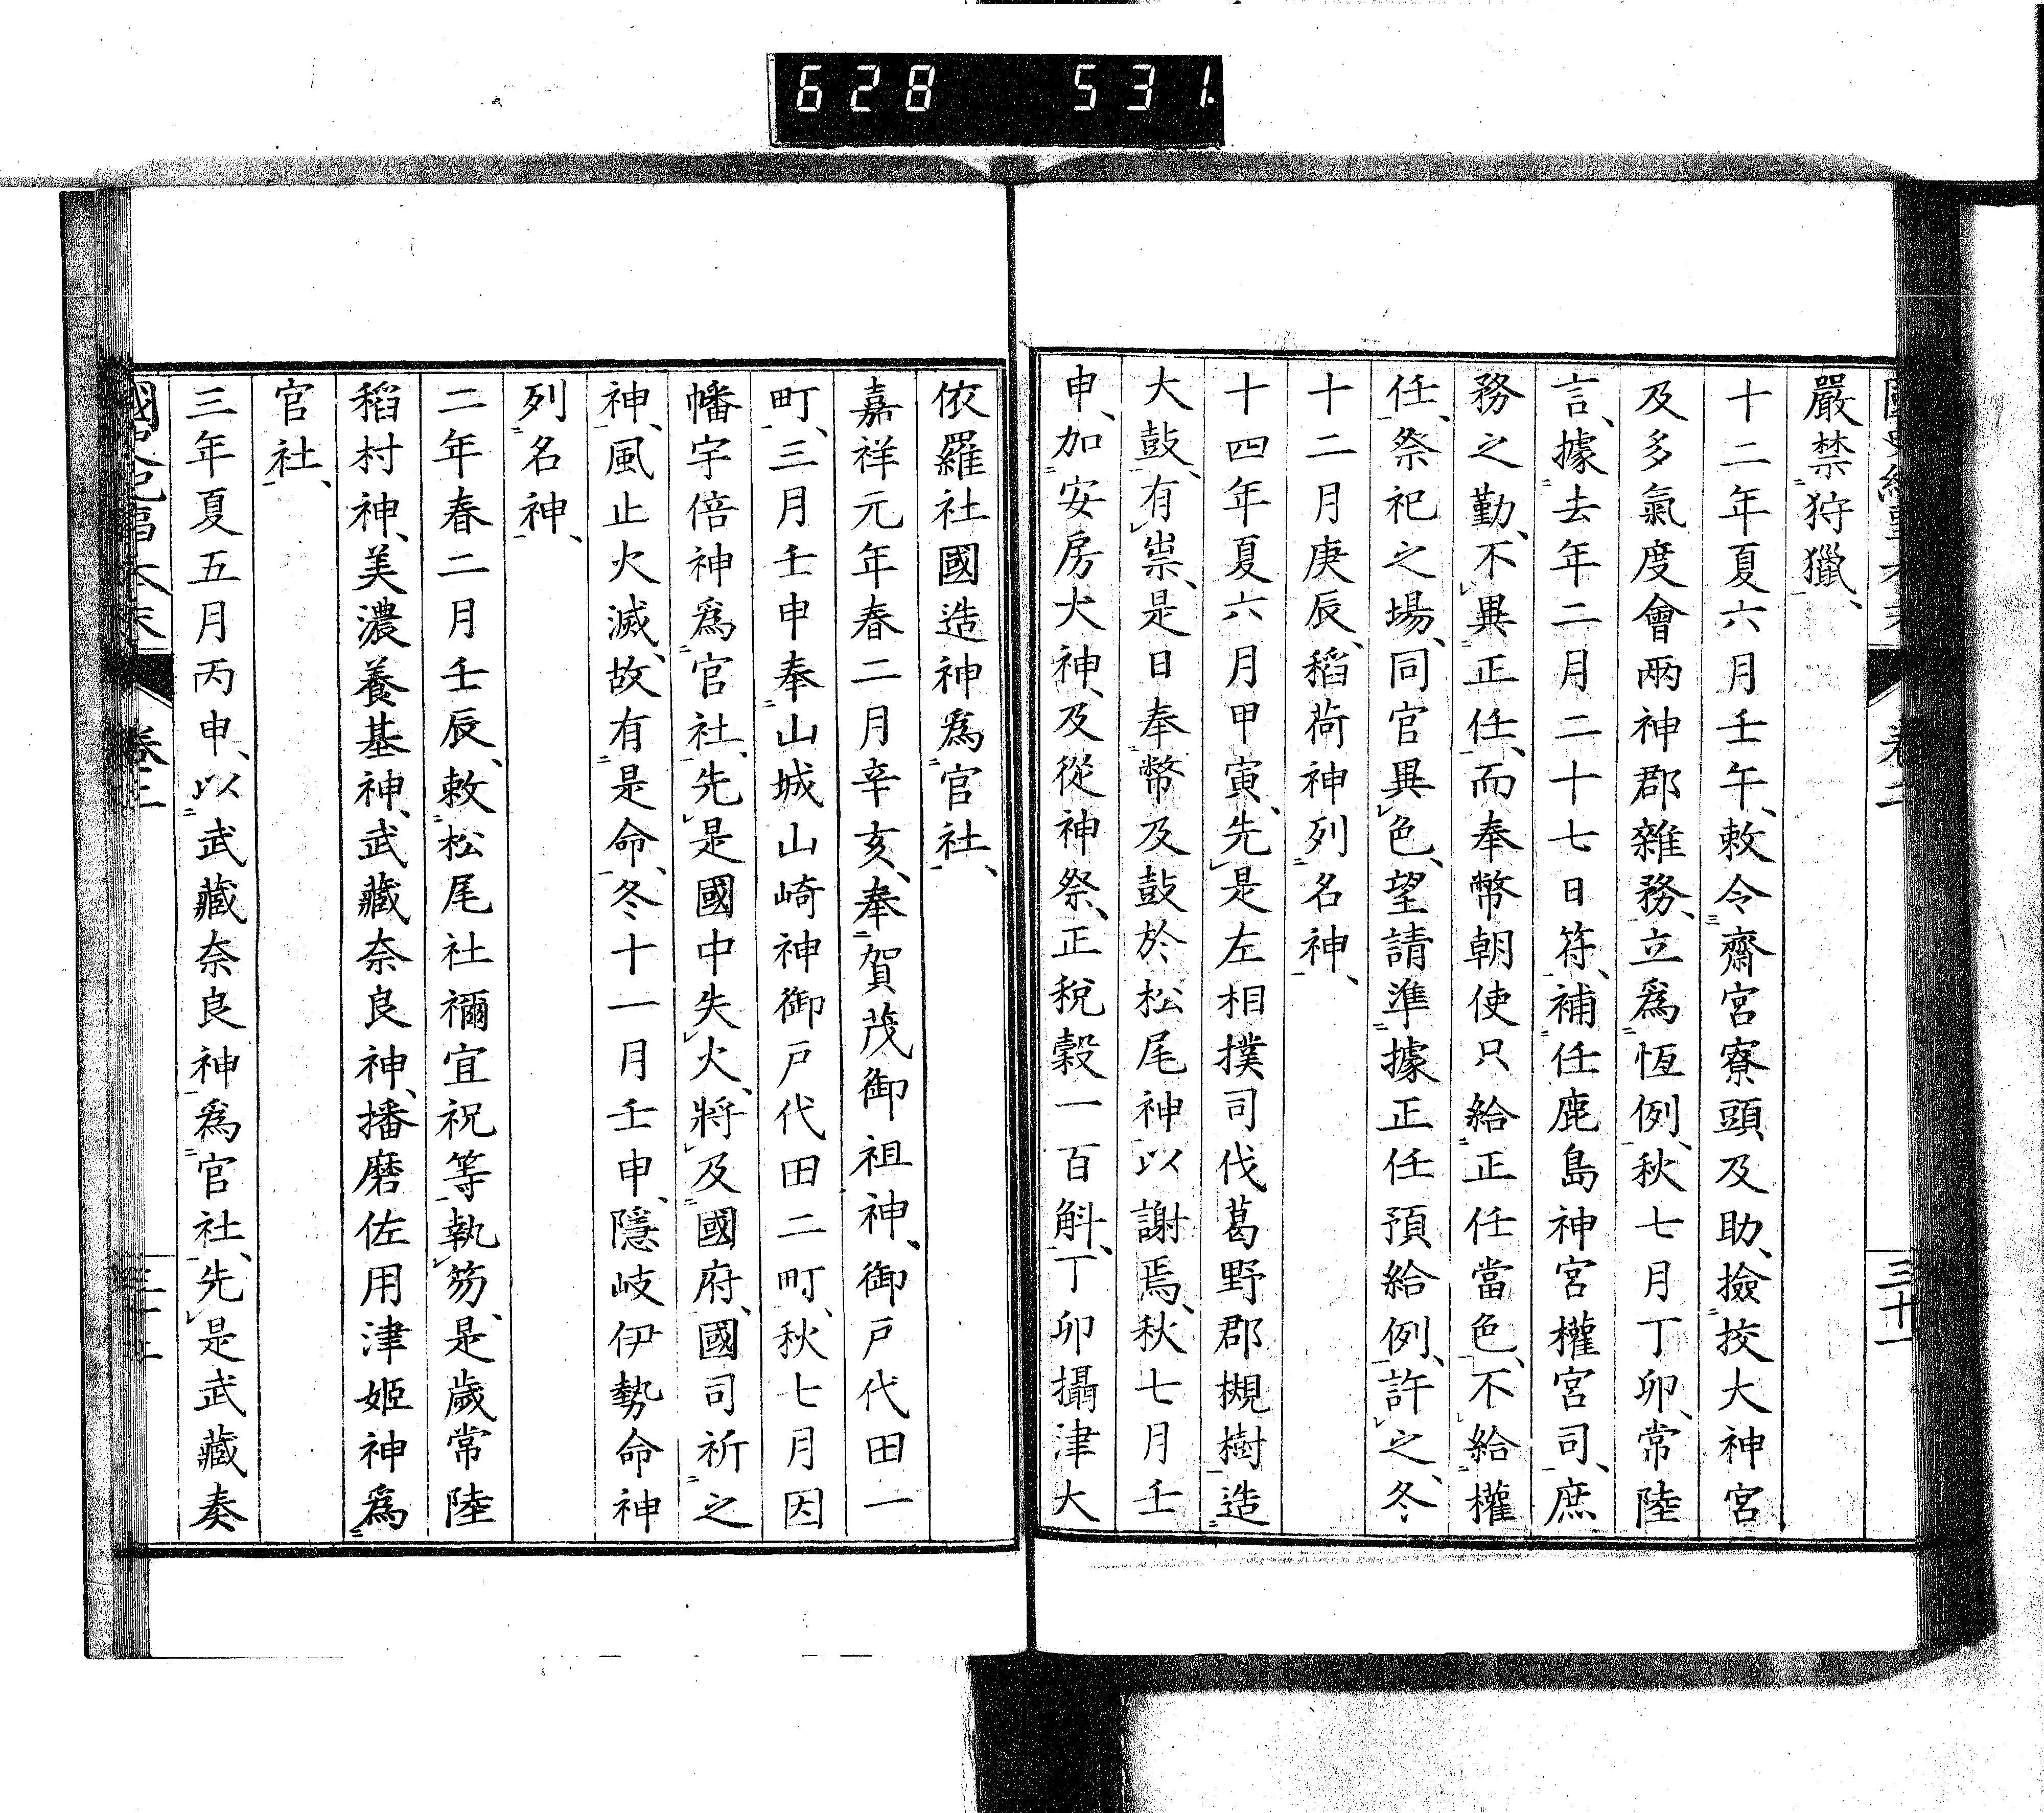 628 531.
嚴禁狩獵、
十二年夏六月壬午、敕令齋宮寮頭及助、撿挍大神宮
及多氣度會兩神郡雜務、立爲恆例、秋七月丁卯、常陸
言、據去年二月二十七日符、補任鹿島神宮權宮司、庶
務之勤、不異正任、而奉幣朝使只給正任當色、不給權
任、祭祀之場、同官異色、望請準據正任預給例、許之、冬
十二月庚辰、稻荷神列名神、
十四年夏六月甲寅、先是左相撲司伐葛野郡槻樹造
大鼓、有祟、是日奉幣及鼓於松尾神以謝焉、秋七月壬
申、加安房大神、及從神祭、正稅穀一百斛、丁卯攝津大
依羅社國造神爲官社、
嘉祥元年春二月辛亥、奉賀茂御祖神、御戸代田一
町、三月壬申奉山城山崎神御戸代田二町、秋七月因
幡宇倍神爲官社、先是國中失火、將及國府、國司祈之
神、風止火滅、故有是命、冬十一月壬申、隱岐伊勢命神
列名神、
二年春二月壬辰、敕松尾社禰宜祝等執笏、是歲常陸
稻村神、美濃養基神、武藏奈良神、播磨佐用津姬神爲
官社、
三年夏五月丙申、以武藏奈良神爲官社、先是武藏奏